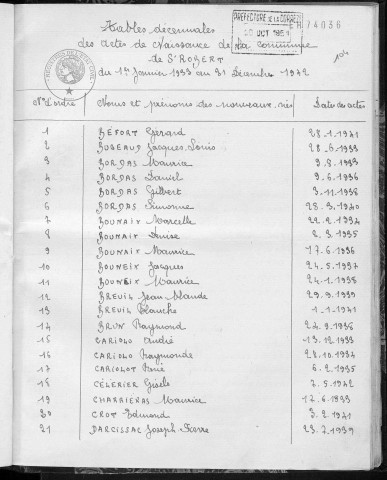 Tables décennales
PRÉFECTURE DE LA CORRÈZE
OCT 1951
E 174036
des actes de Naissance de la commune
de St ROBERT
104
du 1er Janvier 1933 au 31 Décembre 1942
Nos d'ordre Noms et prénoms des nouveaux-nés Dates des actes
1 BÉFORT Gérard 28-1-1941
2 BUGEAUD Jacques Louis 28-6-1933
3 BORDAS Maurice 3-8-1933
4 BORDAS Daniel 9-6-1936
5 BORDAS Gilbert 3-11-1938
6 BORDAS Simonne 28-3-1940
7 BOUNAIX Marcelle 22-2-1934
8 BOUNAIX Denise 2-3-1935
9 BOUNAIX Maurice 17-6-1936
10 BOUNEIX Jacques 24-5-1937
11 BOUNEIX Maurice 24-1-1938
12 BREUIL Jean Claude 29-9-1939
13 BREUIL Blanche 1-1-1941
14 BRUN Raymond 24-9-1936
15 CARIOLO André 13-12-1933
16 CARIOLO Raymonde 28-10-1934
17 CARIOLOT René 6-2-1935
18 CÉLERIER Gisèle 7-5-1942
19 CHARRIERAS Maurice 17-6-1933
20 CROT Edmond 3-2-1941
21 DARCISSAC Joseph Pierre 23-7-1939